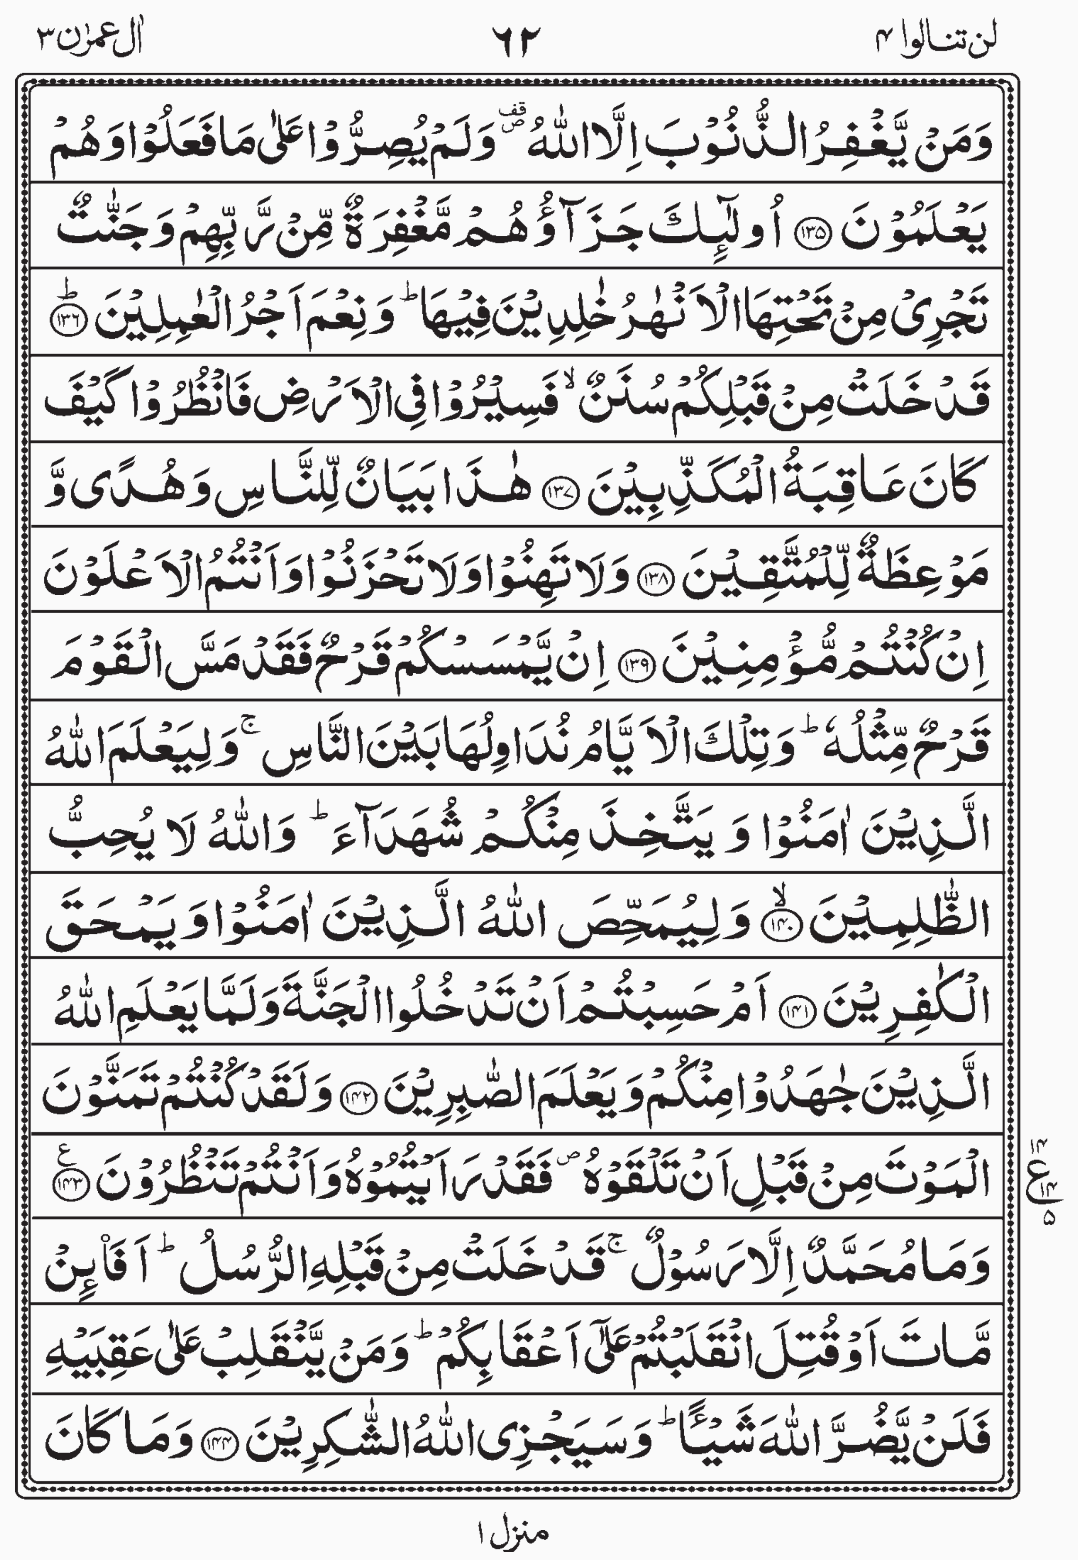 لن تنالوا ۴ ۶۲ اٰل عمرٰن ۳
وَمَنْ يَّغْفِرُ الذُّنُوْبَ اِلَّا اللّٰهُ ۪۟ وَلَمْ يُصِرُّوْا عَلٰى مَا فَعَلُوْا وَهُمْ
يَعْلَمُوْنَ ۝۱۳۵ اُولٰٓئِكَ جَزَآؤُهُمْ مَّغْفِرَةٌ مِّنْ رَّبِّهِمْ وَجَنّٰتٌ
تَجْرِىْ مِنْ تَحْتِهَا الْاَنْهٰرُ خٰلِدِيْنَ فِيْهَا ؕ وَنِعْمَ اَجْرُ الْعٰمِلِيْنَ ؕ۝۱۳۶
قَدْ خَلَتْ مِنْ قَبْلِكُمْ سُنَنٌ ۙ فَسِيْرُوْا فِى الْاَرْضِ فَانْظُرُوْا كَيْفَ
كَانَ عَاقِبَةُ الْمُكَذِّبِيْنَ ۝۱۳۷ هٰذَا بَيَانٌ لِّلنَّاسِ وَهُدًى وَّ
مَوْعِظَةٌ لِّلْمُتَّقِيْنَ ۝۱۳۸ وَلَا تَهِنُوْا وَلَا تَحْزَنُوْا وَاَنْتُمُ الْاَعْلَوْنَ
اِنْ كُنْتُمْ مُّؤْمِنِيْنَ ۝۱۳۹ اِنْ يَّمْسَسْكُمْ قَرْحٌ فَقَدْ مَسَّ الْقَوْمَ
قَرْحٌ مِّثْلُهٗ ؕ وَتِلْكَ الْاَيَّامُ نُدَاوِلُهَا بَيْنَ النَّاسِ ۚ وَلِيَعْلَمَ اللّٰهُ
الَّذِيْنَ اٰمَنُوْا وَ يَتَّخِذَ مِنْكُمْ شُهَدَآءَ ؕ وَاللّٰهُ لَا يُحِبُّ
الظّٰلِمِيْنَ ۙ۝۱۴۰ وَلِيُمَحِّصَ اللّٰهُ الَّذِيْنَ اٰمَنُوْا وَيَمْحَقَ
الْكٰفِرِيْنَ ۝۱۴۱ اَمْ حَسِبْتُمْ اَنْ تَدْخُلُوا الْجَنَّةَ وَلَمَّا يَعْلَمِ اللّٰهُ
الَّذِيْنَ جٰهَدُوْا مِنْكُمْ وَيَعْلَمَ الصّٰبِرِيْنَ ۝۱۴۲ وَلَقَدْ كُنْتُمْ تَمَنَّوْنَ
الْمَوْتَ مِنْ قَبْلِ اَنْ تَلْقَوْهُ ۪ فَقَدْ رَاَيْتُمُوْهُ وَاَنْتُمْ تَنْظُرُوْنَ ۝۱۴۳ ع
۱۴ ع ۱۴ ۵
وَمَا مُحَمَّدٌ اِلَّا رَسُوْلٌ ۚ قَدْ خَلَتْ مِنْ قَبْلِهِ الرُّسُلُ ؕ اَفَا۟ئِنْ
مَّاتَ اَوْ قُتِلَ انْقَلَبْتُمْ عَلٰٓى اَعْقَابِكُمْ ؕ وَمَنْ يَّنْقَلِبْ عَلٰى عَقِبَيْهِ
فَلَنْ يَّضُرَّ اللّٰهَ شَيْـًٔا ؕ وَسَيَجْزِى اللّٰهُ الشّٰكِرِيْنَ ۝۱۴۴ وَمَا كَانَ
منزل ۱